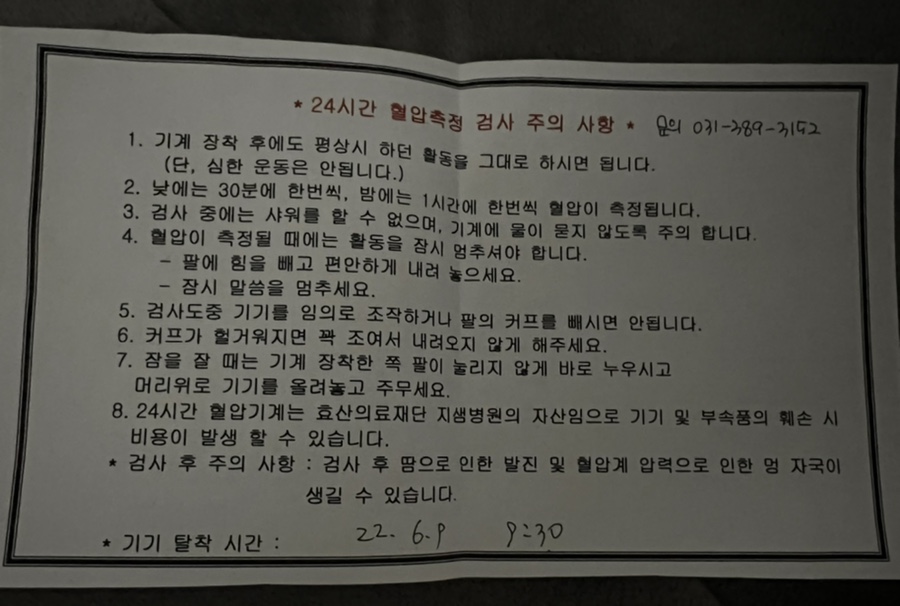 * 24시간 혈압측정 검사 주의 사항 * 문의 031-389-3152
1. 기계 장착 후에도 평상시 하던 활동을 그대로 하시면 됩니다.
(단, 심한 운동은 안됩니다.)
2. 낮에는 30분에 한번씩, 밤에는 1시간에 한번씩 혈압이 측정됩니다.
3. 검사 중에는 샤워를 할 수 없으며, 기계에 물이 묻지 않도록 주의 합니다.
4. 혈압이 측정될 때에는 활동을 잠시 멈추셔야 합니다.
- 팔에 힘을 빼고 편안하게 내려 놓으세요.
- 잠시 말씀을 멈추세요.
5. 검사도중 기기를 임의로 조작하거나 팔의 커프를 빼시면 안됩니다.
6. 커프가 헐거워지면 꽉 조여서 내려오지 않게 해주세요.
7. 잠을 잘 때는 기계 장착한 쪽 팔이 눌리지 않게 바로 누우시고
머리위로 기기를 올려놓고 주무세요.
8. 24시간 혈압기계는 효산의료재단 지샘병원의 자산임으로 기기 및 부속품의 훼손 시
비용이 발생 할 수 있습니다.
* 검사 후 주의 사항 : 검사 후 땀으로 인한 발진 및 혈압계 압력으로 인한 멍 자국이
생길 수 있습니다.
* 기기 탈착 시간 : 22. 6.9 9:30